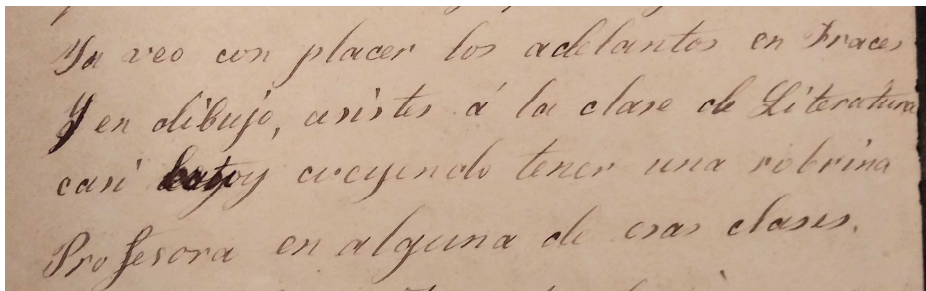 Ya veo con placer los adelantos en Fraces
Y en dibujo, asistes á la clase de Literatura
casi estoy creyendo tener una sobrina
Profesora en alguna de esas clases.